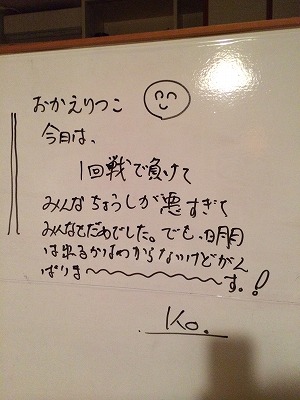 おかえりつこ
今日は、
1回戦で負けて
みんなちょうしが悪すぎて
みんなもだめでした。でも、1日間
は出るかはわからないけどがん
ばりま〜〜〜〜〜〜す。!
Ko.